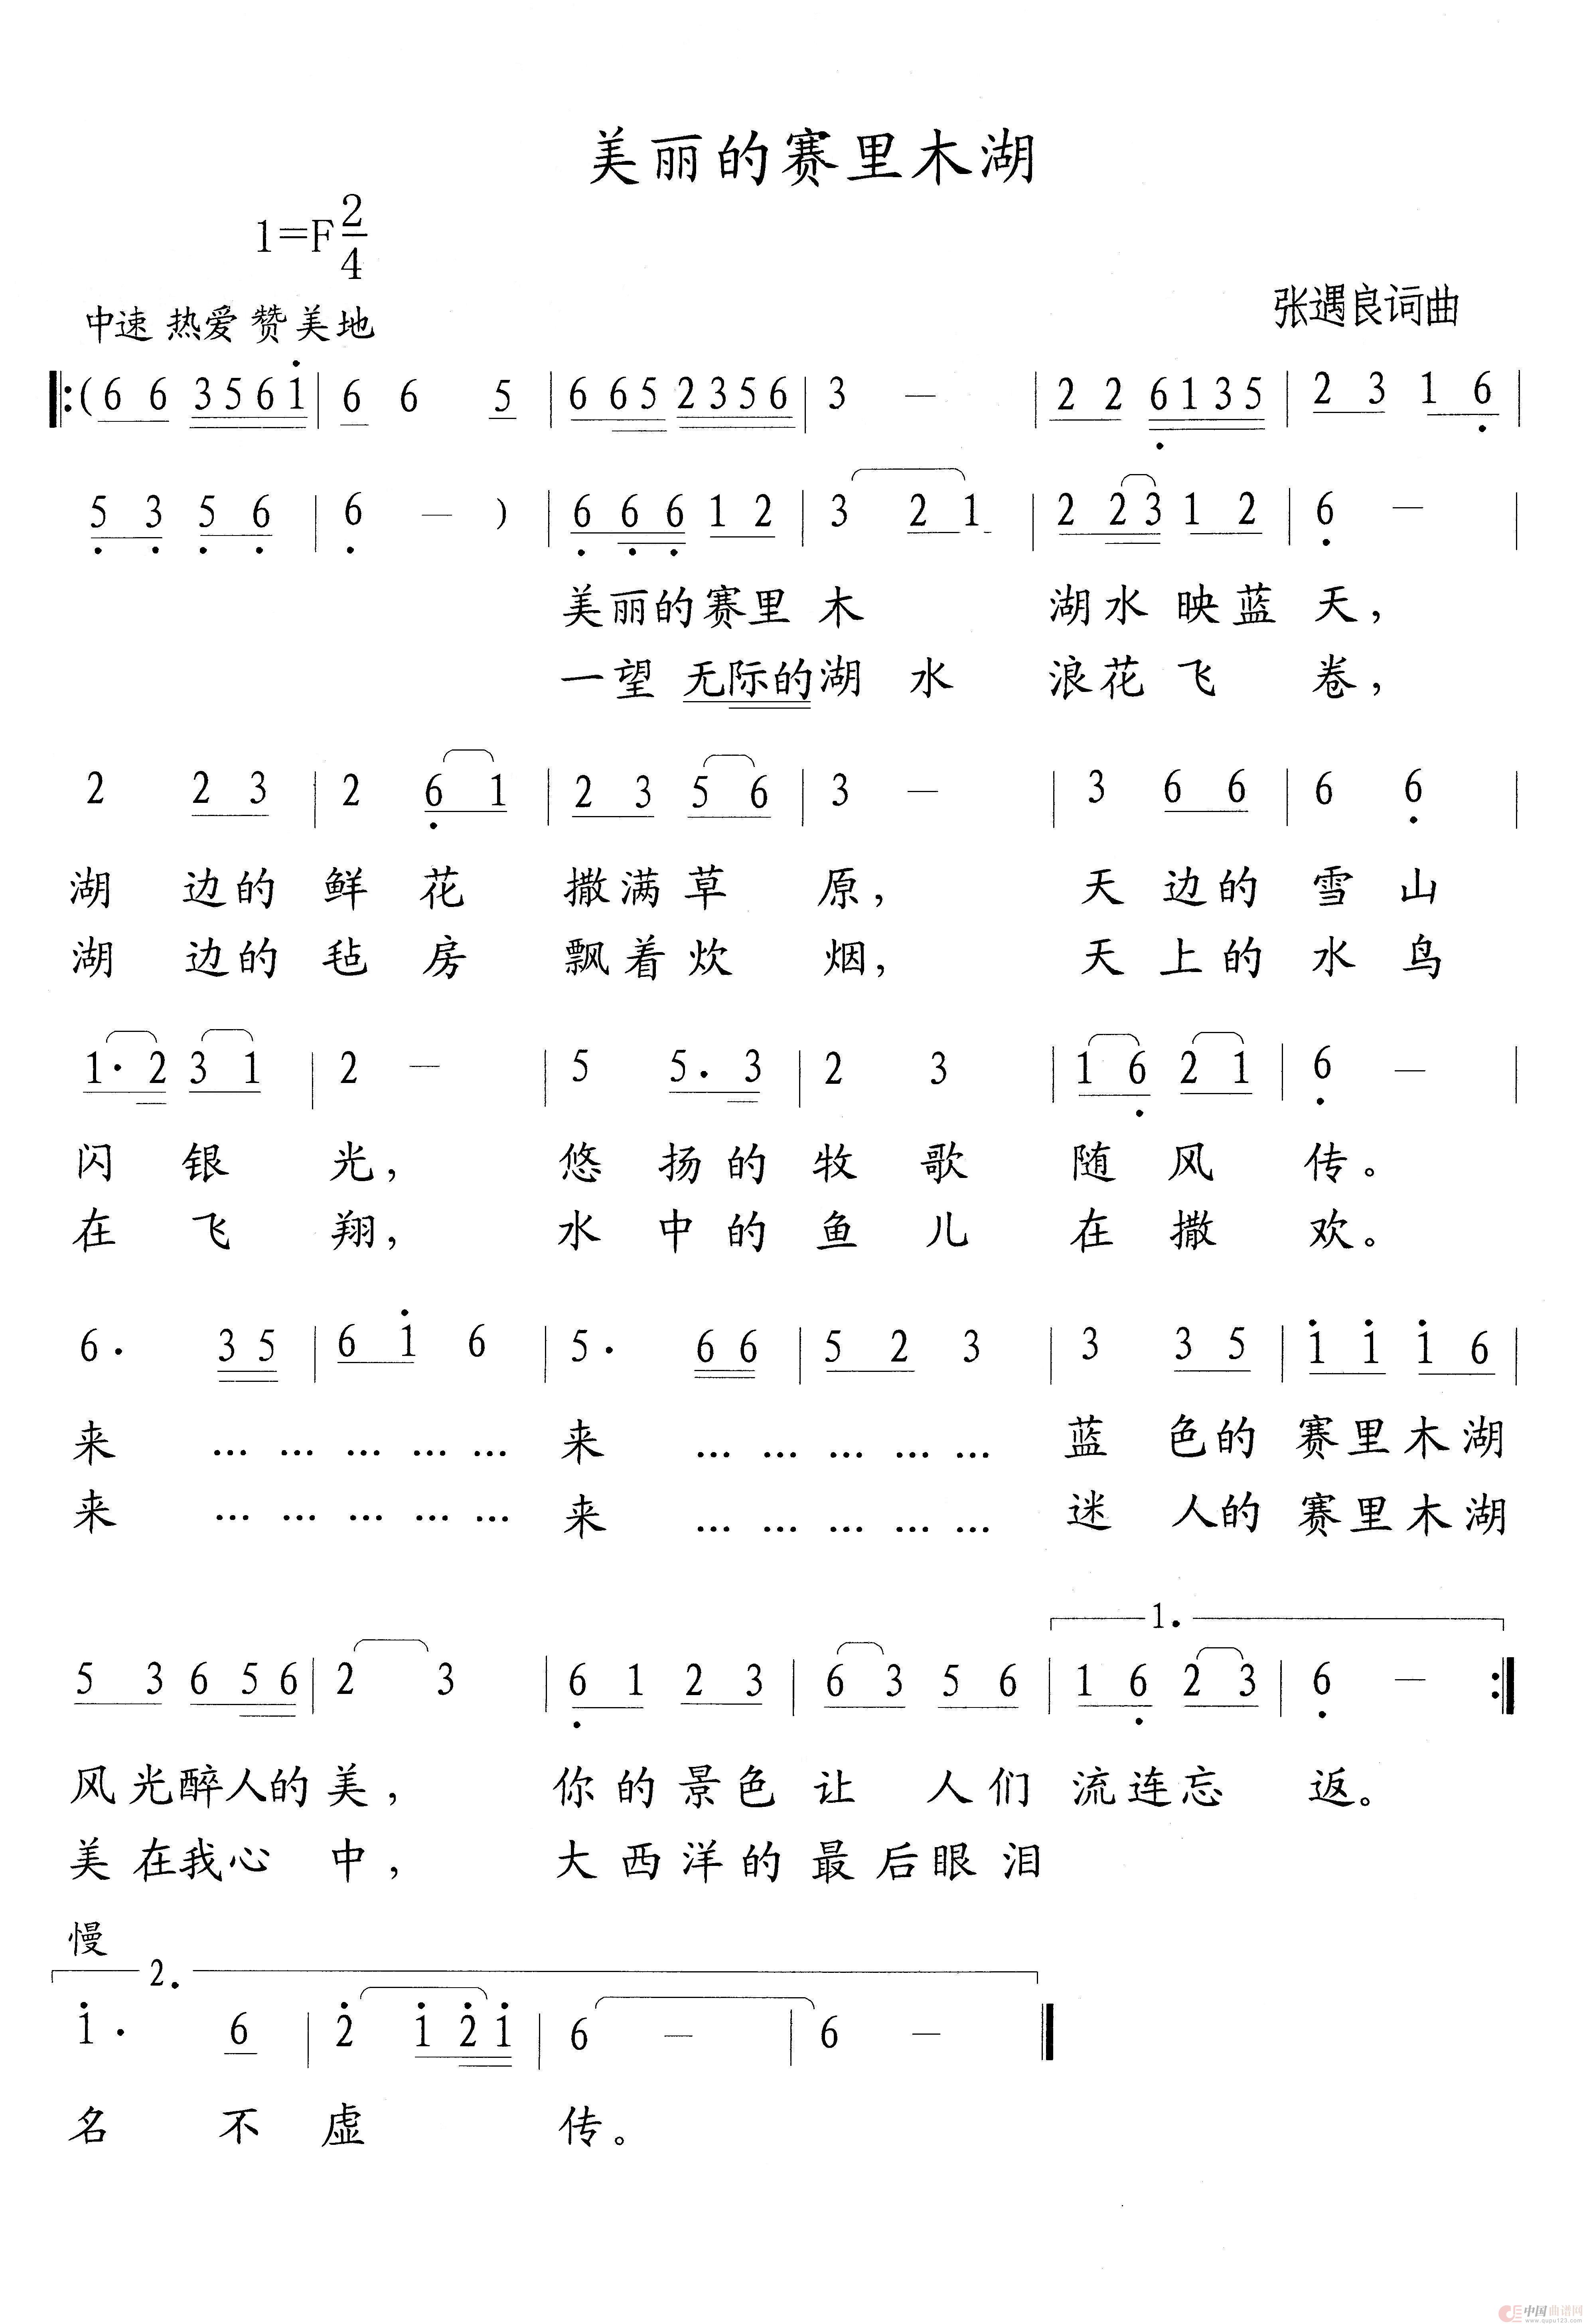 美丽的赛里木湖
1=F 2/4
中速 热爱 赞美地
张遇良词曲
‖:(6 6 3 5 6 i | 6 6 5 | 6 6 5 2 3 5 6 | 3 — | 2 2 6 1 3 5 | 2 3 1 6 |
5 3 5 6 | 6 — ) | 6 6 6 1 2 | 3 2 1 | 2 2 3 1 2 | 6 — |
美丽的赛里 木 湖水 映蓝 天，
一望 无际的湖 水 浪花 飞 卷，
2 2 3 | 2 6 1 | 2 3 5 6 | 3 — | 3 6 6 | 6 6 |
湖 边的 鲜 花 撒满 草 原， 天 边的 雪 山
湖 边的 毡 房 飘着 炊 烟， 天 上的 水 鸟
1· 2 3 1 | 2 — | 5 5· 3 | 2 3 | 1 6 2 1 | 6 — |
闪 银 光， 悠 扬的 牧 歌 随 风 传。
在 飞 翔， 水 中的 鱼 儿 在 撒 欢。
6· 3 5 | 6 i 6 | 5· 6 6 | 5 2 3 | 3 3 5 | i i i 6 |
来 … … … … … 来 … … … … … 蓝 色的 赛里木湖
来 … … … … … 来 … … … … … 迷 人的 赛里木湖
1.
5 3 6 5 6 | 2 3 | 6 1 2 3 | 6 3 5 6 | 1 6 2 3 | 6 — :‖
风光醉人的 美， 你的景色 让 人们 流连忘 返。
美在我心 中， 大西洋的 最后眼泪
慢
2.
i· 6 | 2 i 2 i | 6 — | 6 — ‖
名 不 虚 传。
中国曲谱网
www.qupu123.com